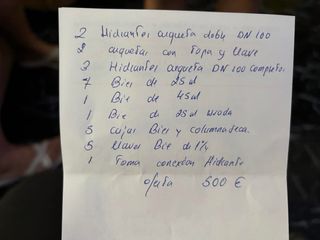 2 Hidrantes arqueta doble DN 100
2 arquetas con tapa y llave
2 Hidrantes arqueta DN 100 completos
7 Bies de 25 ul
1 Bie de 45 ul
1 Bie de 25 ul usada
5 cajas Bies y columna seca.
5 llaves Bie de 1½
1 Toma conexion Hidrante
oferta 500 €